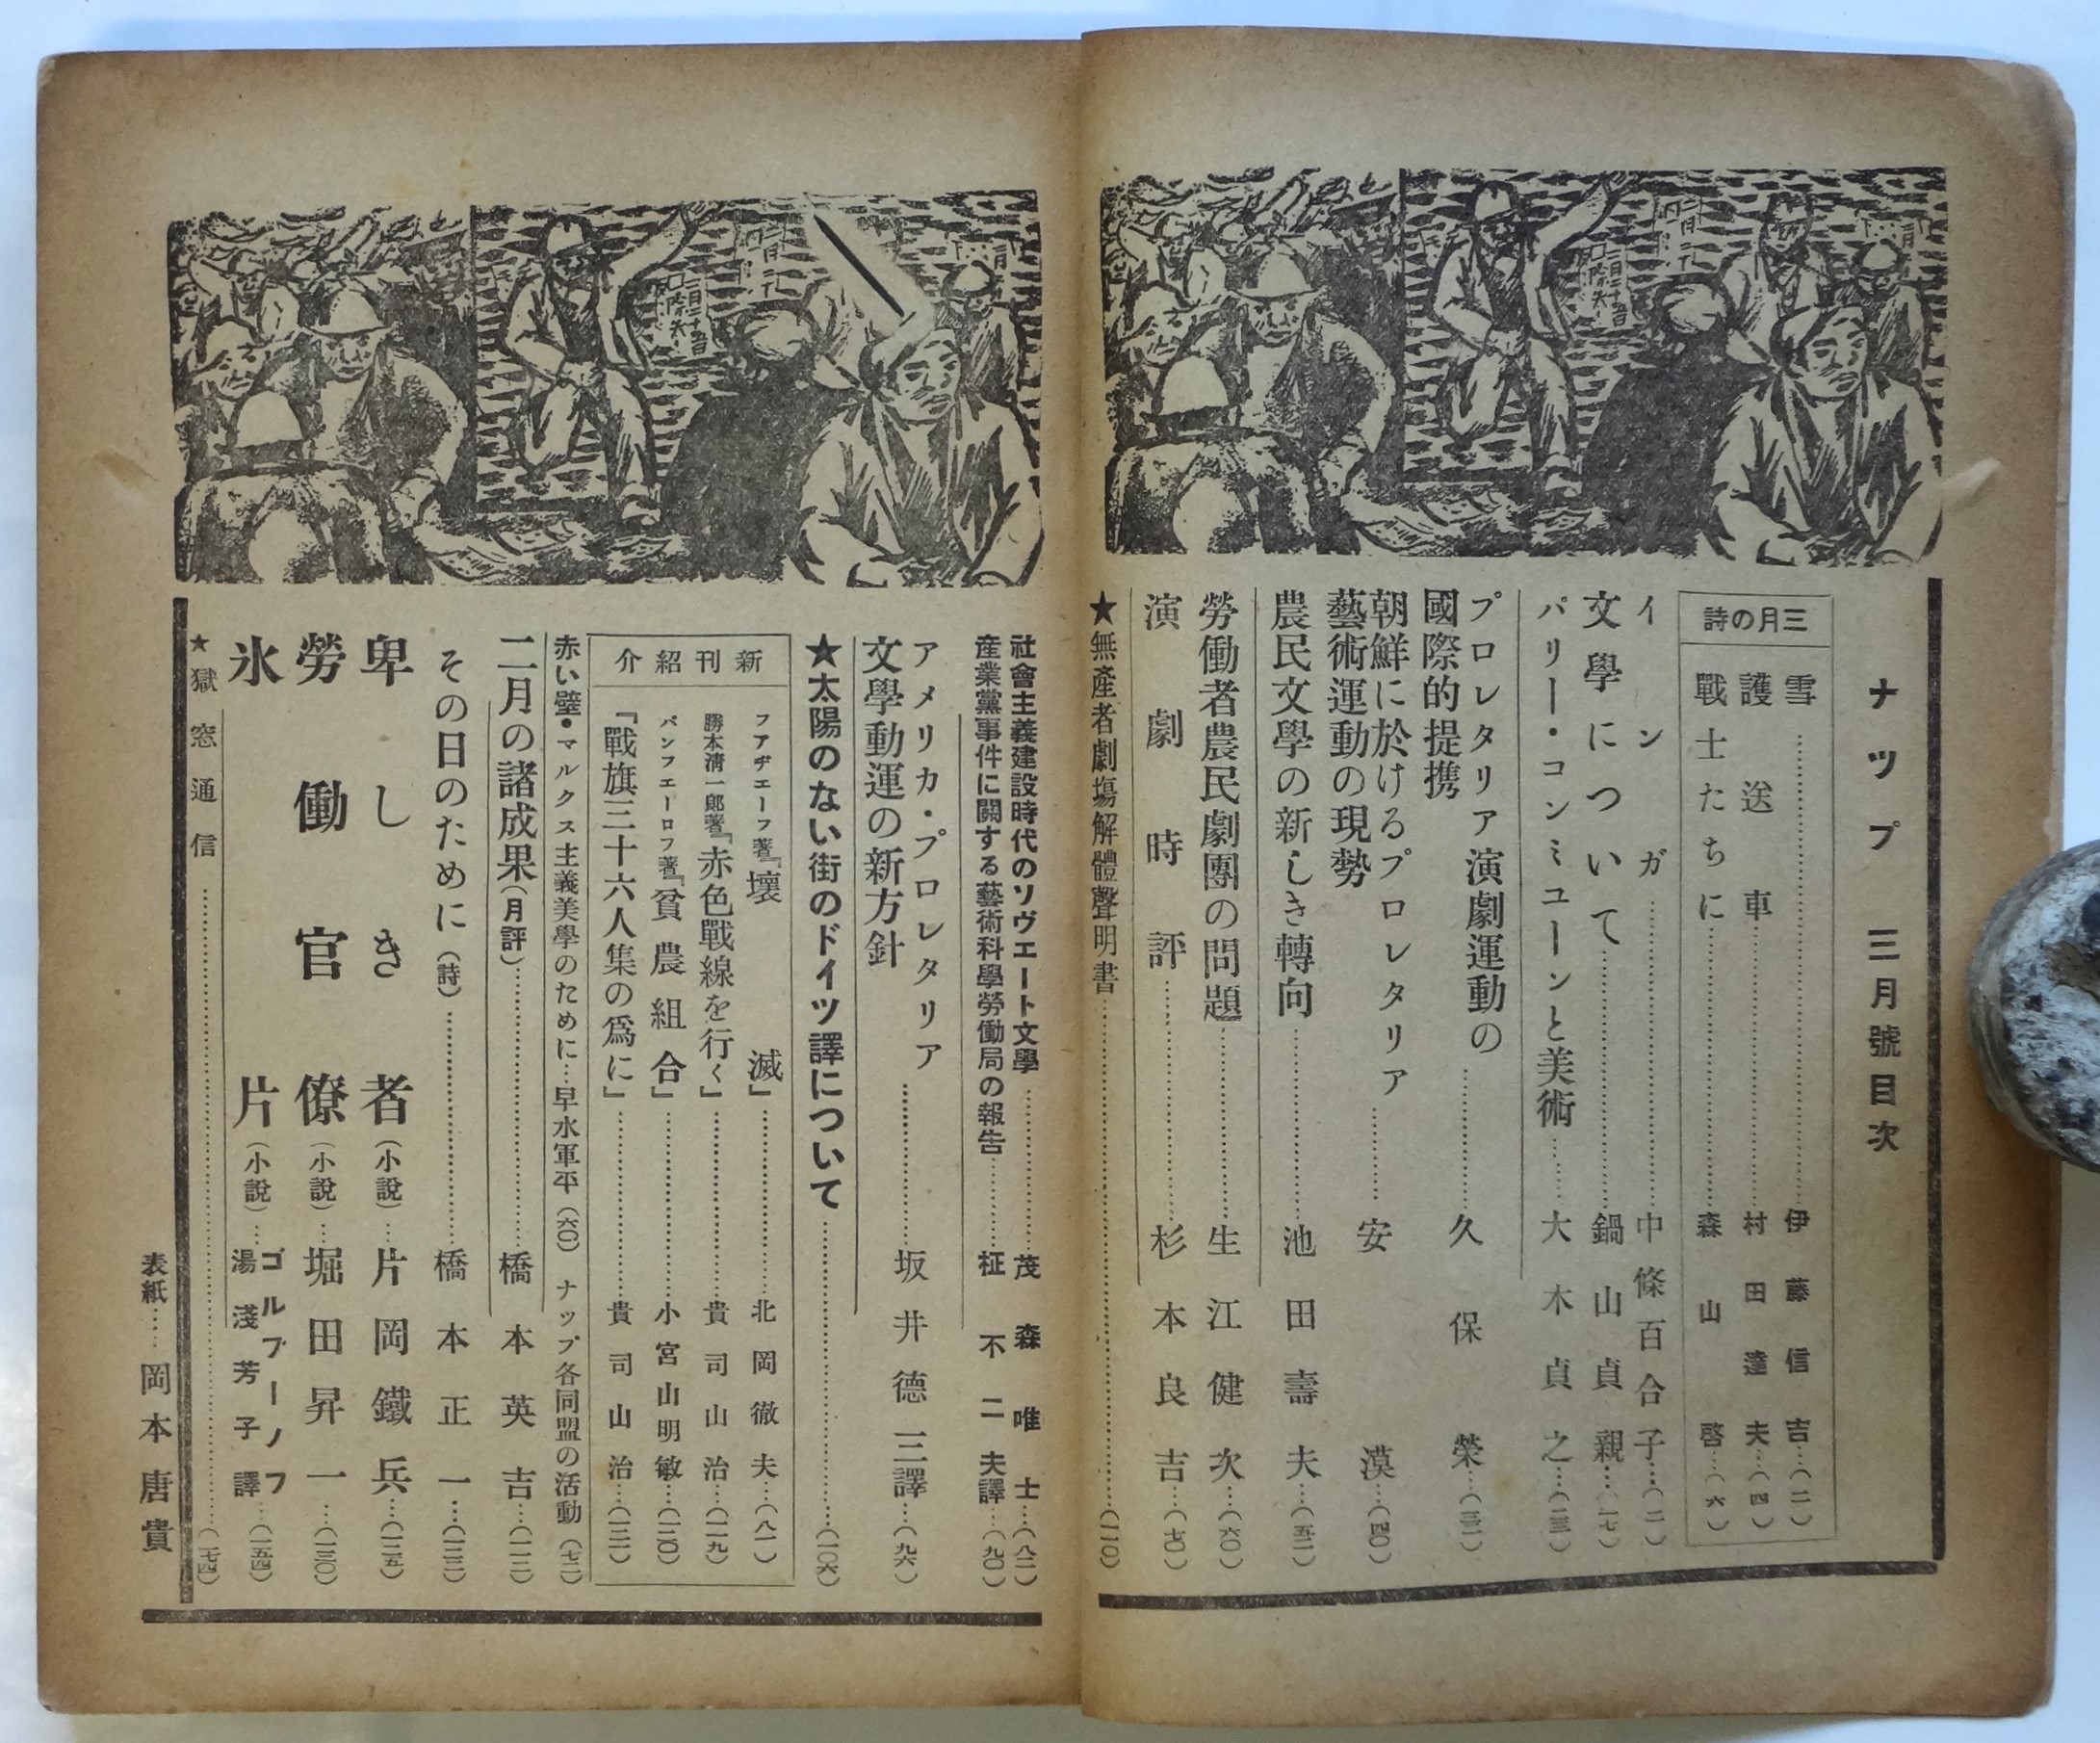 ナップ 三月號目次
三月の詩
雪……伊藤信吉…(二)
護送車……村田達夫…(四)
戰士たちに……森山啓…(六)
インガ……中條百合子…(二)
文學について……鍋山貞親…(一七)
パリー・コンミユーンと美術……大木貞之…(三三)
プロレタリア演劇運動の
國際的提携……久保榮…(三二)
朝鮮に於けるプロレタリア
藝術運動の現勢……安漠…(四〇)
農民文學の新しき轉向……池田壽夫…(五二)
勞働者農民劇團の問題……生江健次…(六〇)
演劇時評……杉本良吉…(七〇)
★無產者劇場解體聲明書……(一一〇)
社會主義建設時代のソヴエート文學……茂森唯士…(八二)
産業黨事件に關する藝術科學勞働局の報告……柾不二夫譯…(九〇)
アメリカ・プロレタリア
文學動運の新方針……坂井德三譯…(九六)
★太陽のない街のドイツ譯について……(一〇六)
新刊紹介
フアヂエーフ著『壞滅』……北岡徹夫…(八一)
勝本淸一郞著『赤色戰線を行く』……貴司山治…(一一九)
パンフエーロフ著『貧農組合』……小宮山明敏…(一二〇)
『戰旗三十六人集の爲に』……貴司山治…(一二一)
赤い壁・マルクス主義美學のために…早水軍平(六〇) ナップ各同盟の活動(七二)
二月の諸成果(月評)……橋本英吉…(一一二)
その日のために(詩)……橋本正一…(一二二)
卑しき者(小說)…片岡鐵兵…(一二五)
勞働官僚(小說)…堀田昇一…(一三〇)
氷片(小說)…ゴルブーノフ
湯淺芳子譯…(一五四)
★獄窓通信……(七四)
表紙……岡本唐貴